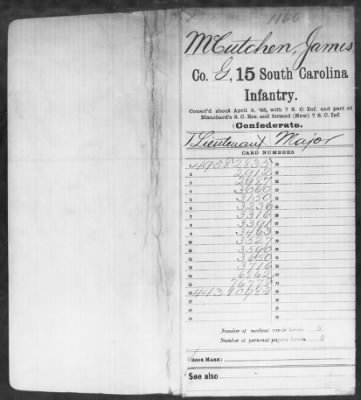 1166
McCutchen, James
Co. G, 15 South Carolina
Infantry.
Consol'd about April 9, '65, with 7 S. C. Inf. and part of
Blanchard's S. C. Res. and formed (New) 7 S. C. Inf.
(Confederate.
1 Lieutenant Major
CARD NUMBERS.
49582835
2912
2987
3060
3150
3236
3316
3391
3463
3527
3590
3650
3716
Number of medical cards herein 0
Number of personal papers herein 0
BOOK MARK:
See also